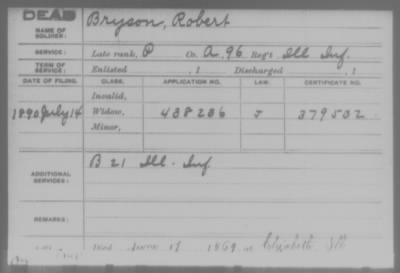 DEAD
NAME OF SOLDIER: Bryson, Robert
SERVICE: Late rank, P Co. A, 96 Reg't Ill Inf.
TERM OF SERVICE: Enlisted , 1 Discharged , 1
DATE OF FILING. CLASS. APPLICATION NO. LAW. CERTIFICATE NO.
Invalid,
1890 July 14 Widow, 438286 J 379502
Minor,
ADDITIONAL SERVICES: B 21 Ill. Inf
REMARKS:
Died 17 1869 at Elizabeth Ill